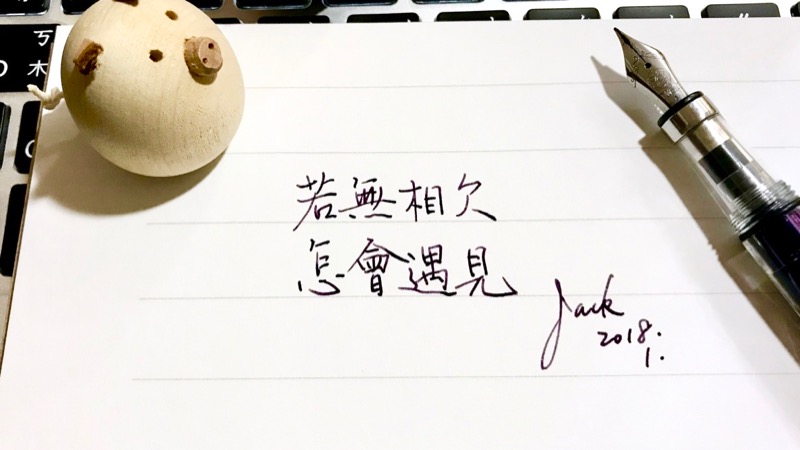 ㄎ
木
若無相欠
怎會遇見
Jack
2018.
1.